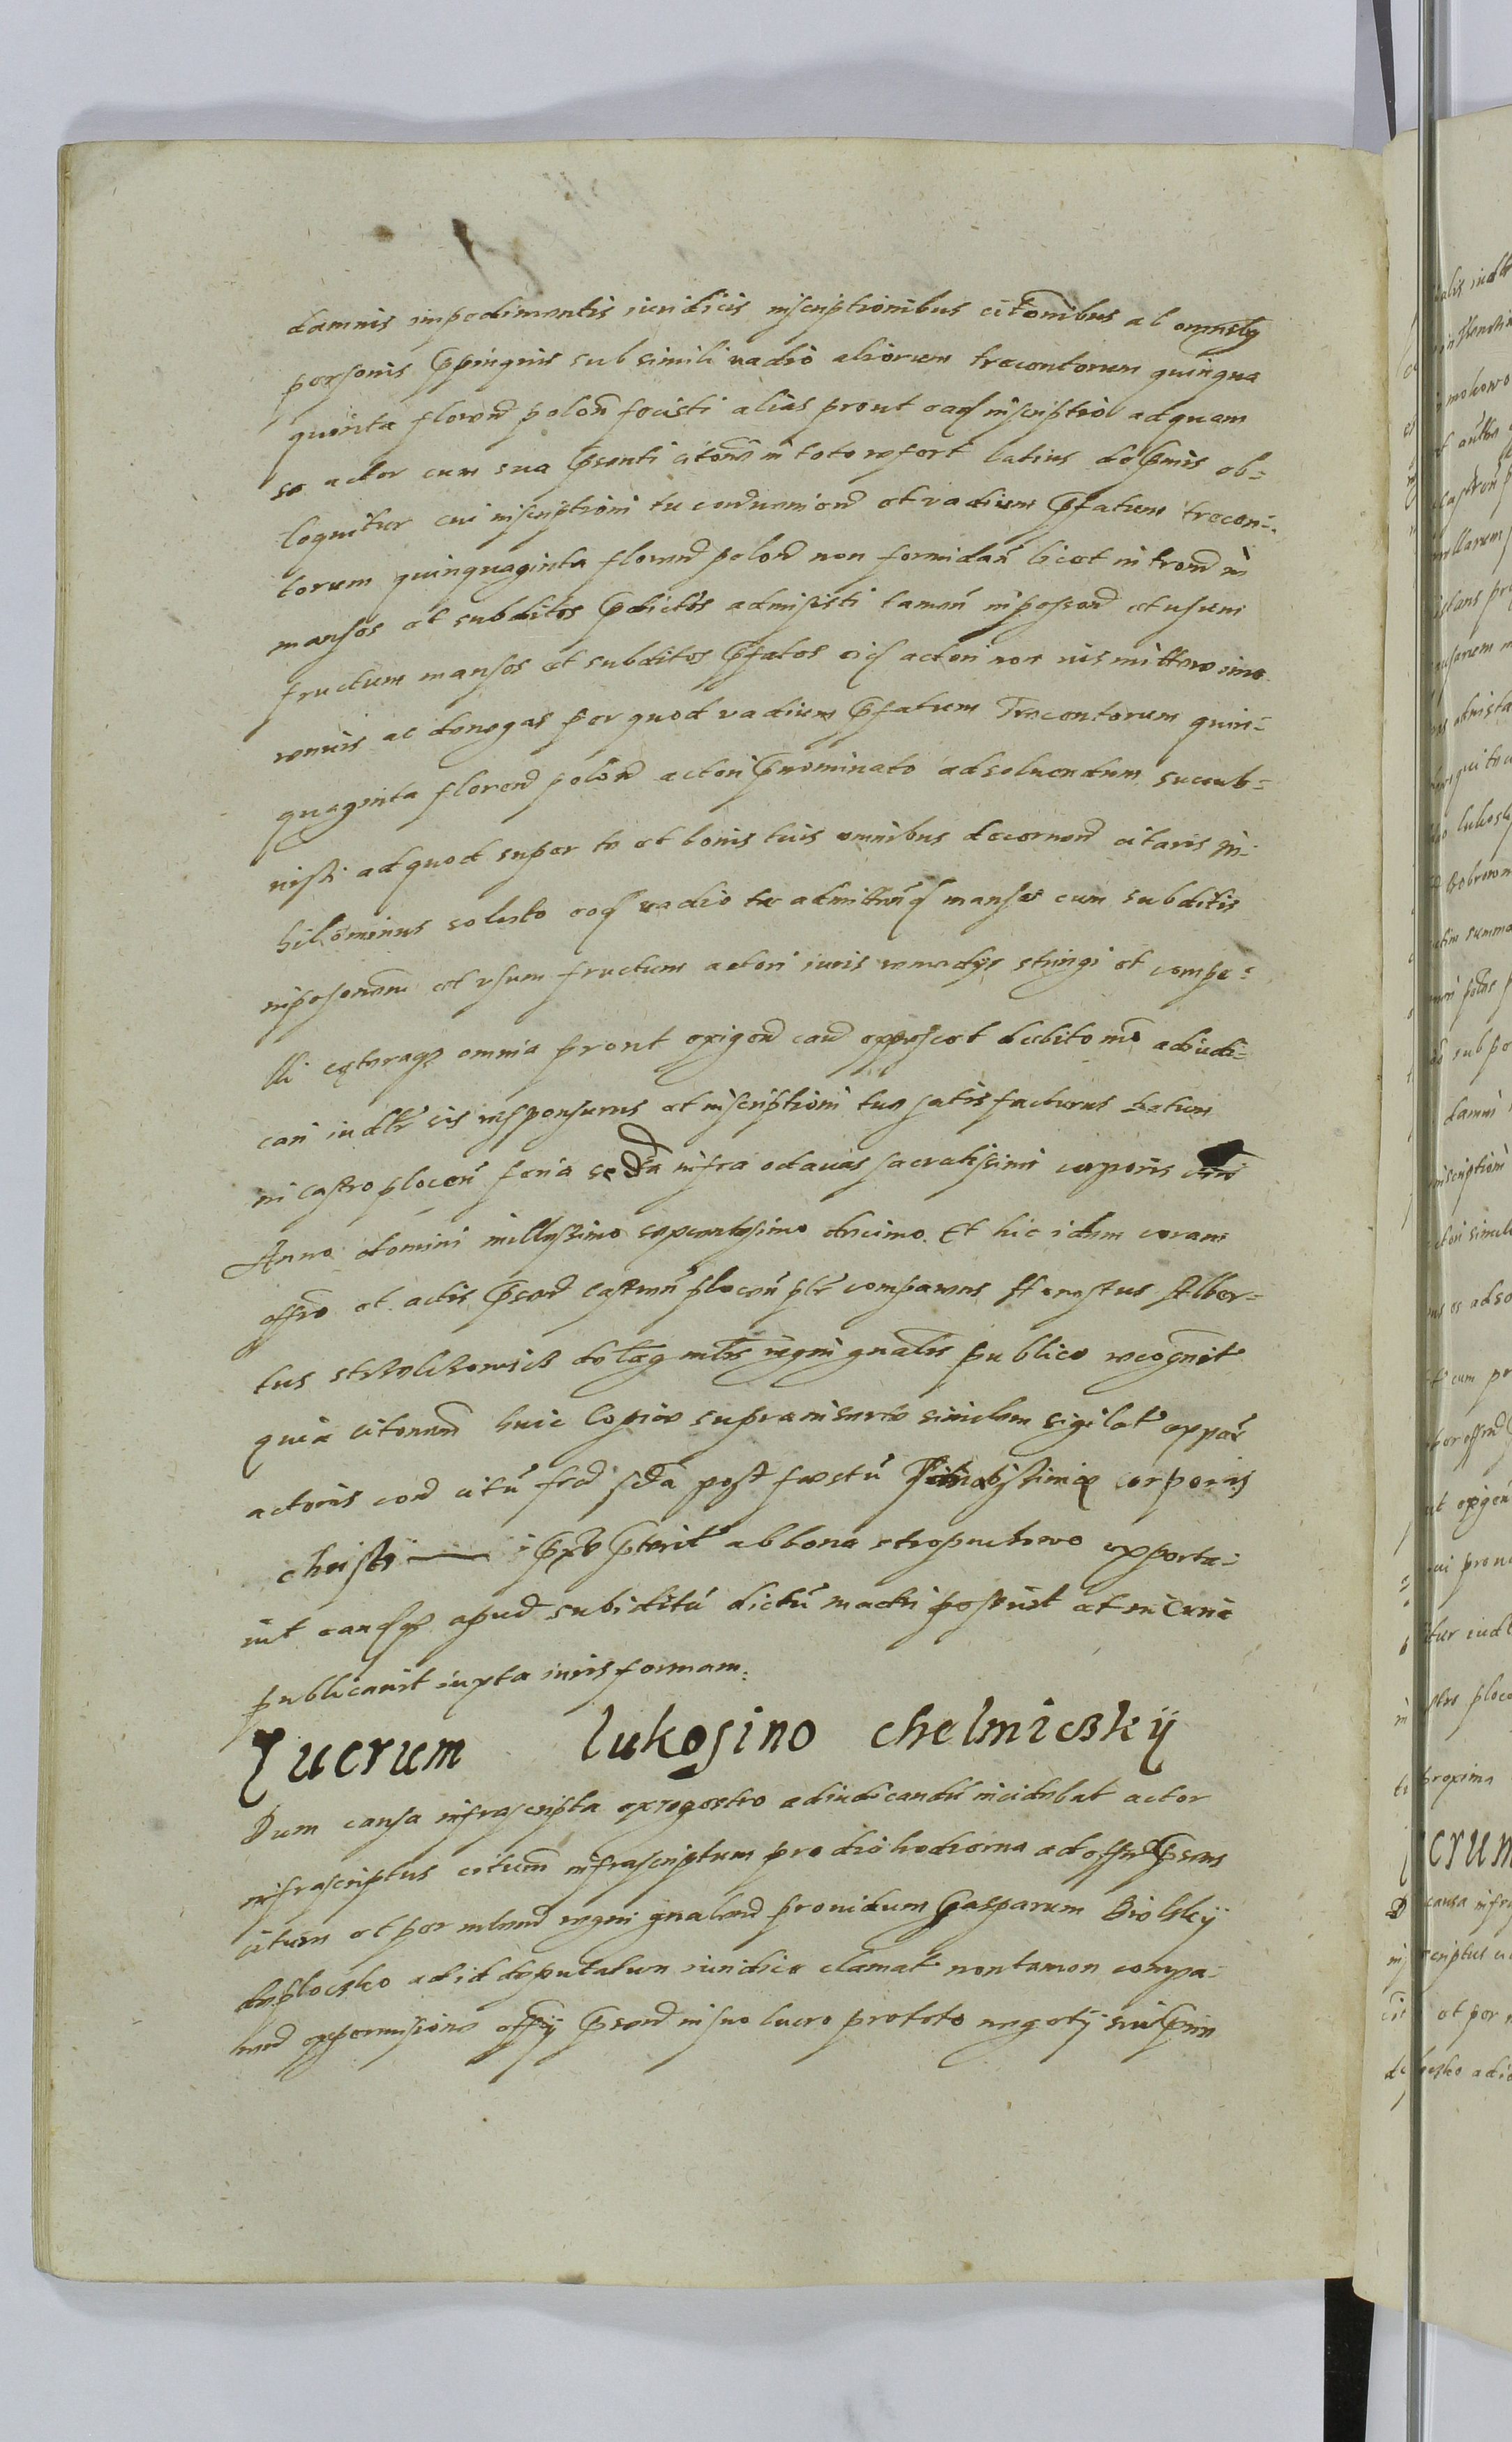 damnis impedimentis iuridicis inscriptionibus citonibus al omnibq
personis ppinquis sub simili vadio aliorum trecentorum quinqua
ginta floren polon fecisti alias prout eaq inscriptio ad quam
se actor cum sua psenti citone in toto refert latius de pmis ob=
loquitur cui inscriptioni tu contraveniend et vadium pfatum trecen=
torum quinquaginta floren polon non formidan licet intrond in
mansos et subditos pdictos admisisti tamen in possend et usum
fructum mansos et subditos pfatos eiq actori non vis mittere imo
renuis ac denegas per quod vadium pfatum Trecentorum quin=
quaginta floren polon actori pnominato adsoluendum succub=
uisti ad quod super te et bonis tuis omnibus decernend citaris ni=
hilominus soluto eoq vadio te admittenq mansos cum subditis
in posonem et usum fructum actori iuris remedys stringi et compe=
lli cęteraqz omnia prout exigend caus exposcet debito mo adiudi=
cari iudltr sis responsurus et inscriptioni tuo satisfacturus Datum
in Castro plocen feria scda infra octauas sacratissimi corporis chri
Anno domini millesimo sexcentesimo decimo. Et hic idem coram
offio et actis psend castren plocen plr comparens honestus Alber=
tus publice recognit
quia citonem huic Copiæ suprainserte similem sigilat ex par
actoris cond citu feria scda post festu Sanctissimi corporis
christi — pxe pterit ab bona stropuchowo exporta=
uit eanqz apud subiditu dictu posuit et
publicauit iuxta iuris formam.
Lucrum lukosino chelmiczkij
Dum causa infrascripta ex regestro adiudicandu incidebat actor
infrascriptus citum infrascriptum pro die hodierna ad offm psens
citum et per mlrem regni gnalem prouidum Gasparum Bielskij
de plocsko ad id deputatum iuridice clamat non tamen compa=
rend ex permissione offij psend in suo lucro pro toto negotij sui pnn